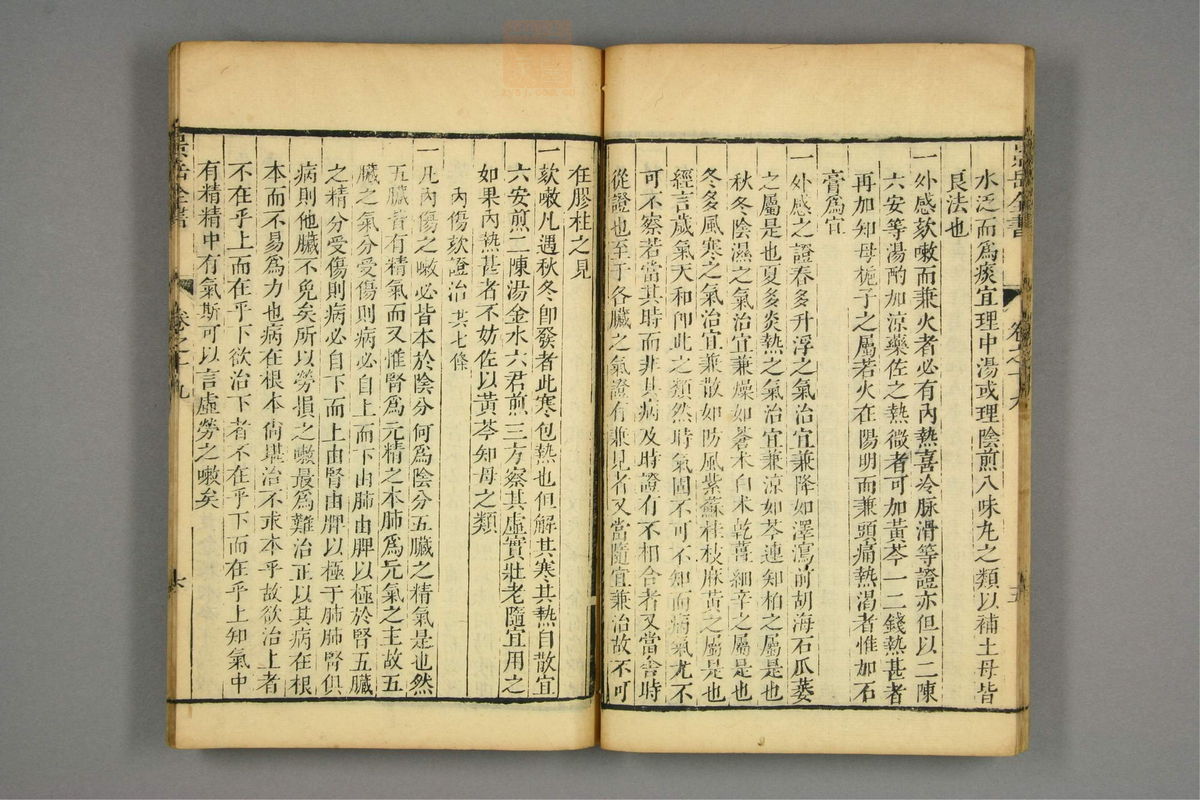 景岳全書
卷之十九
五
水泛而爲痰宜理中湯或理陰煎八味丸之類以補土母皆
良法也
一外感欬嗽而兼火者必有內熱喜冷脉滑等證亦但以二陳
六安等湯酌加涼藥佐之熱微者可加黃芩一二錢熱甚者
再加知母梔子之屬若火在陽明而兼頭痛熱渴者惟加石
膏爲宜
一外感之證春多升浮之氣治宜兼降如澤瀉前胡海石瓜蔞
之屬是也夏多炎熱之氣治宜兼涼如芩連知柏之屬是也
秋冬陰濕之氣治宜兼燥如蒼朮白朮乾薑細辛之屬是也
冬多風寒之氣治宜兼散如防風紫蘇桂枝麻黃之屬是也
經言歲氣天和卽此之類然時氣固不可不知而病氣尤不
可不察若當其時而非其病及時證有不相合者又當舍時
從證也至于各臟之氣證有兼見者又當隨宜兼治故不可
任膠柱之見
一欬嗽凡遇秋冬卽發者此寒包熱也但解其寒其熱自散宜
六安煎二陳湯金水六君煎三方察其虛實壯老隨宜用之
如果內熱甚者不妨佐以黃芩知母之類
內傷欬證治 共七條
一凡內傷之嗽必皆本於陰分何爲陰分五臟之精氣是也然
五臟皆有精氣而又惟腎爲元精之本肺爲元氣之主故五
臟之氣分受傷則病必自上而下由肺由脾以極於腎五臟
之精分受傷則病必自下而上由腎由脾以極于肺肺腎俱
病則他臟不免矣所以勞損之嗽最爲難治正以其病在根
本而不易爲力也病在根本尙堪治不求本乎故欲治上者
不在乎上而在乎下欲治下者不在乎下而在乎上知氣中
有精精中有氣斯可以言虛勞之嗽矣
景岳全書
卷之十九
六